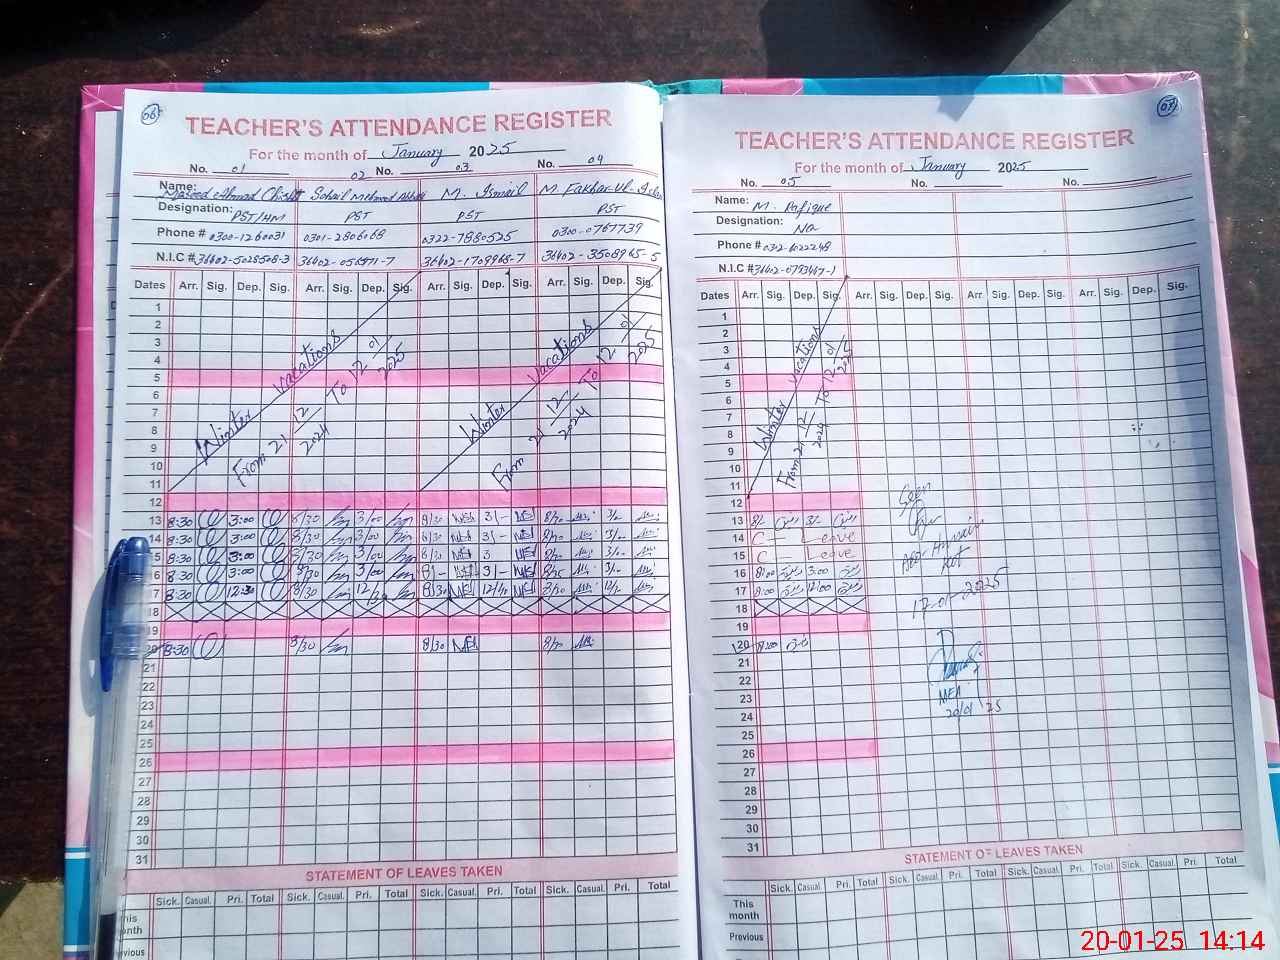 06
TEACHER'S ATTENDANCE REGISTER
For the month of January 2025
No. 01 02 No. 03 No. 04
Name: Masood Ahmad Chishti Sohail Mehmood M. Ismail M. Fakhar-ul-Islam
Designation: PST/HM PST PST PST
Phone # 0300-1260031 0301-2806068 0322-7880525 0300-0767739
N.I.C # 36402-5028508-3 36402-1709968-7 36402-3508965-5
Dates Arr. Sig. Dep. Sig. Arr. Sig. Dep. Sig. Arr. Sig. Dep. Sig. Arr. Sig. Dep. Sig.
1
2
3
4
5
6
7
8
9
10
11
12
Winter vacations
From 21 12 2024 To 12 01 2025
Winter vacations
From 21 12 2024 To 12 01 2025
13 8:30 3:00 8/30 3/00 8/30 3/- 8/30 3/-
14 8:30 3:00 8/30 3/00 8/30 3/- 8/30 3/-
15 8:30 3:00 8/30 3/00 8/30 3 8/30 3/-
16 8:30 3:00 8/30 3/00 8/- 3/-
17 8:30 12:30 8/30 12/30 8/30 12/30 8/30
18
19
20 8:30 8/30 8/30 8/30
21
22
23
24
25
26
27
28
29
30
31
STATEMENT OF LEAVES TAKEN
Sick. Casual. Pri. Total Sick. Casual. Pri. Total Sick. Casual. Pri. Total Sick. Casual. Pri. Total
This month
Previous
07
TEACHER'S ATTENDANCE REGISTER
For the month of January 2025
No. 05 No. No.
Name: M. Rafique
Designation: Na
Phone # 0312-6022248
N.I.C # 36402-0793467-1
Dates Arr. Sig. Dep. Sig. Arr. Sig. Dep. Sig. Arr. Sig. Dep. Sig. Arr. Sig. Dep. Sig.
1
2
3
4
5
6
7
8
9
10
11
12
Winter vacations
From 21 12 2024 To 12 01 2025
13 8/- 3/-
14 C — Leave
15 C — Leave
16 8:00 3:00
17 8:00 12:00
18
19
20 8:00
21
22
23
24
25
26
27
28
29
30
31
Seen
17-01-2025
MEA
20/01/25
STATEMENT OF LEAVES TAKEN
Sick. Casual. Pri. Total Sick. Casual. Pri. Total Sick. Casual. Pri. Total Sick. Casual. Pri. Total
This month
Previous
20-01-25 14:14